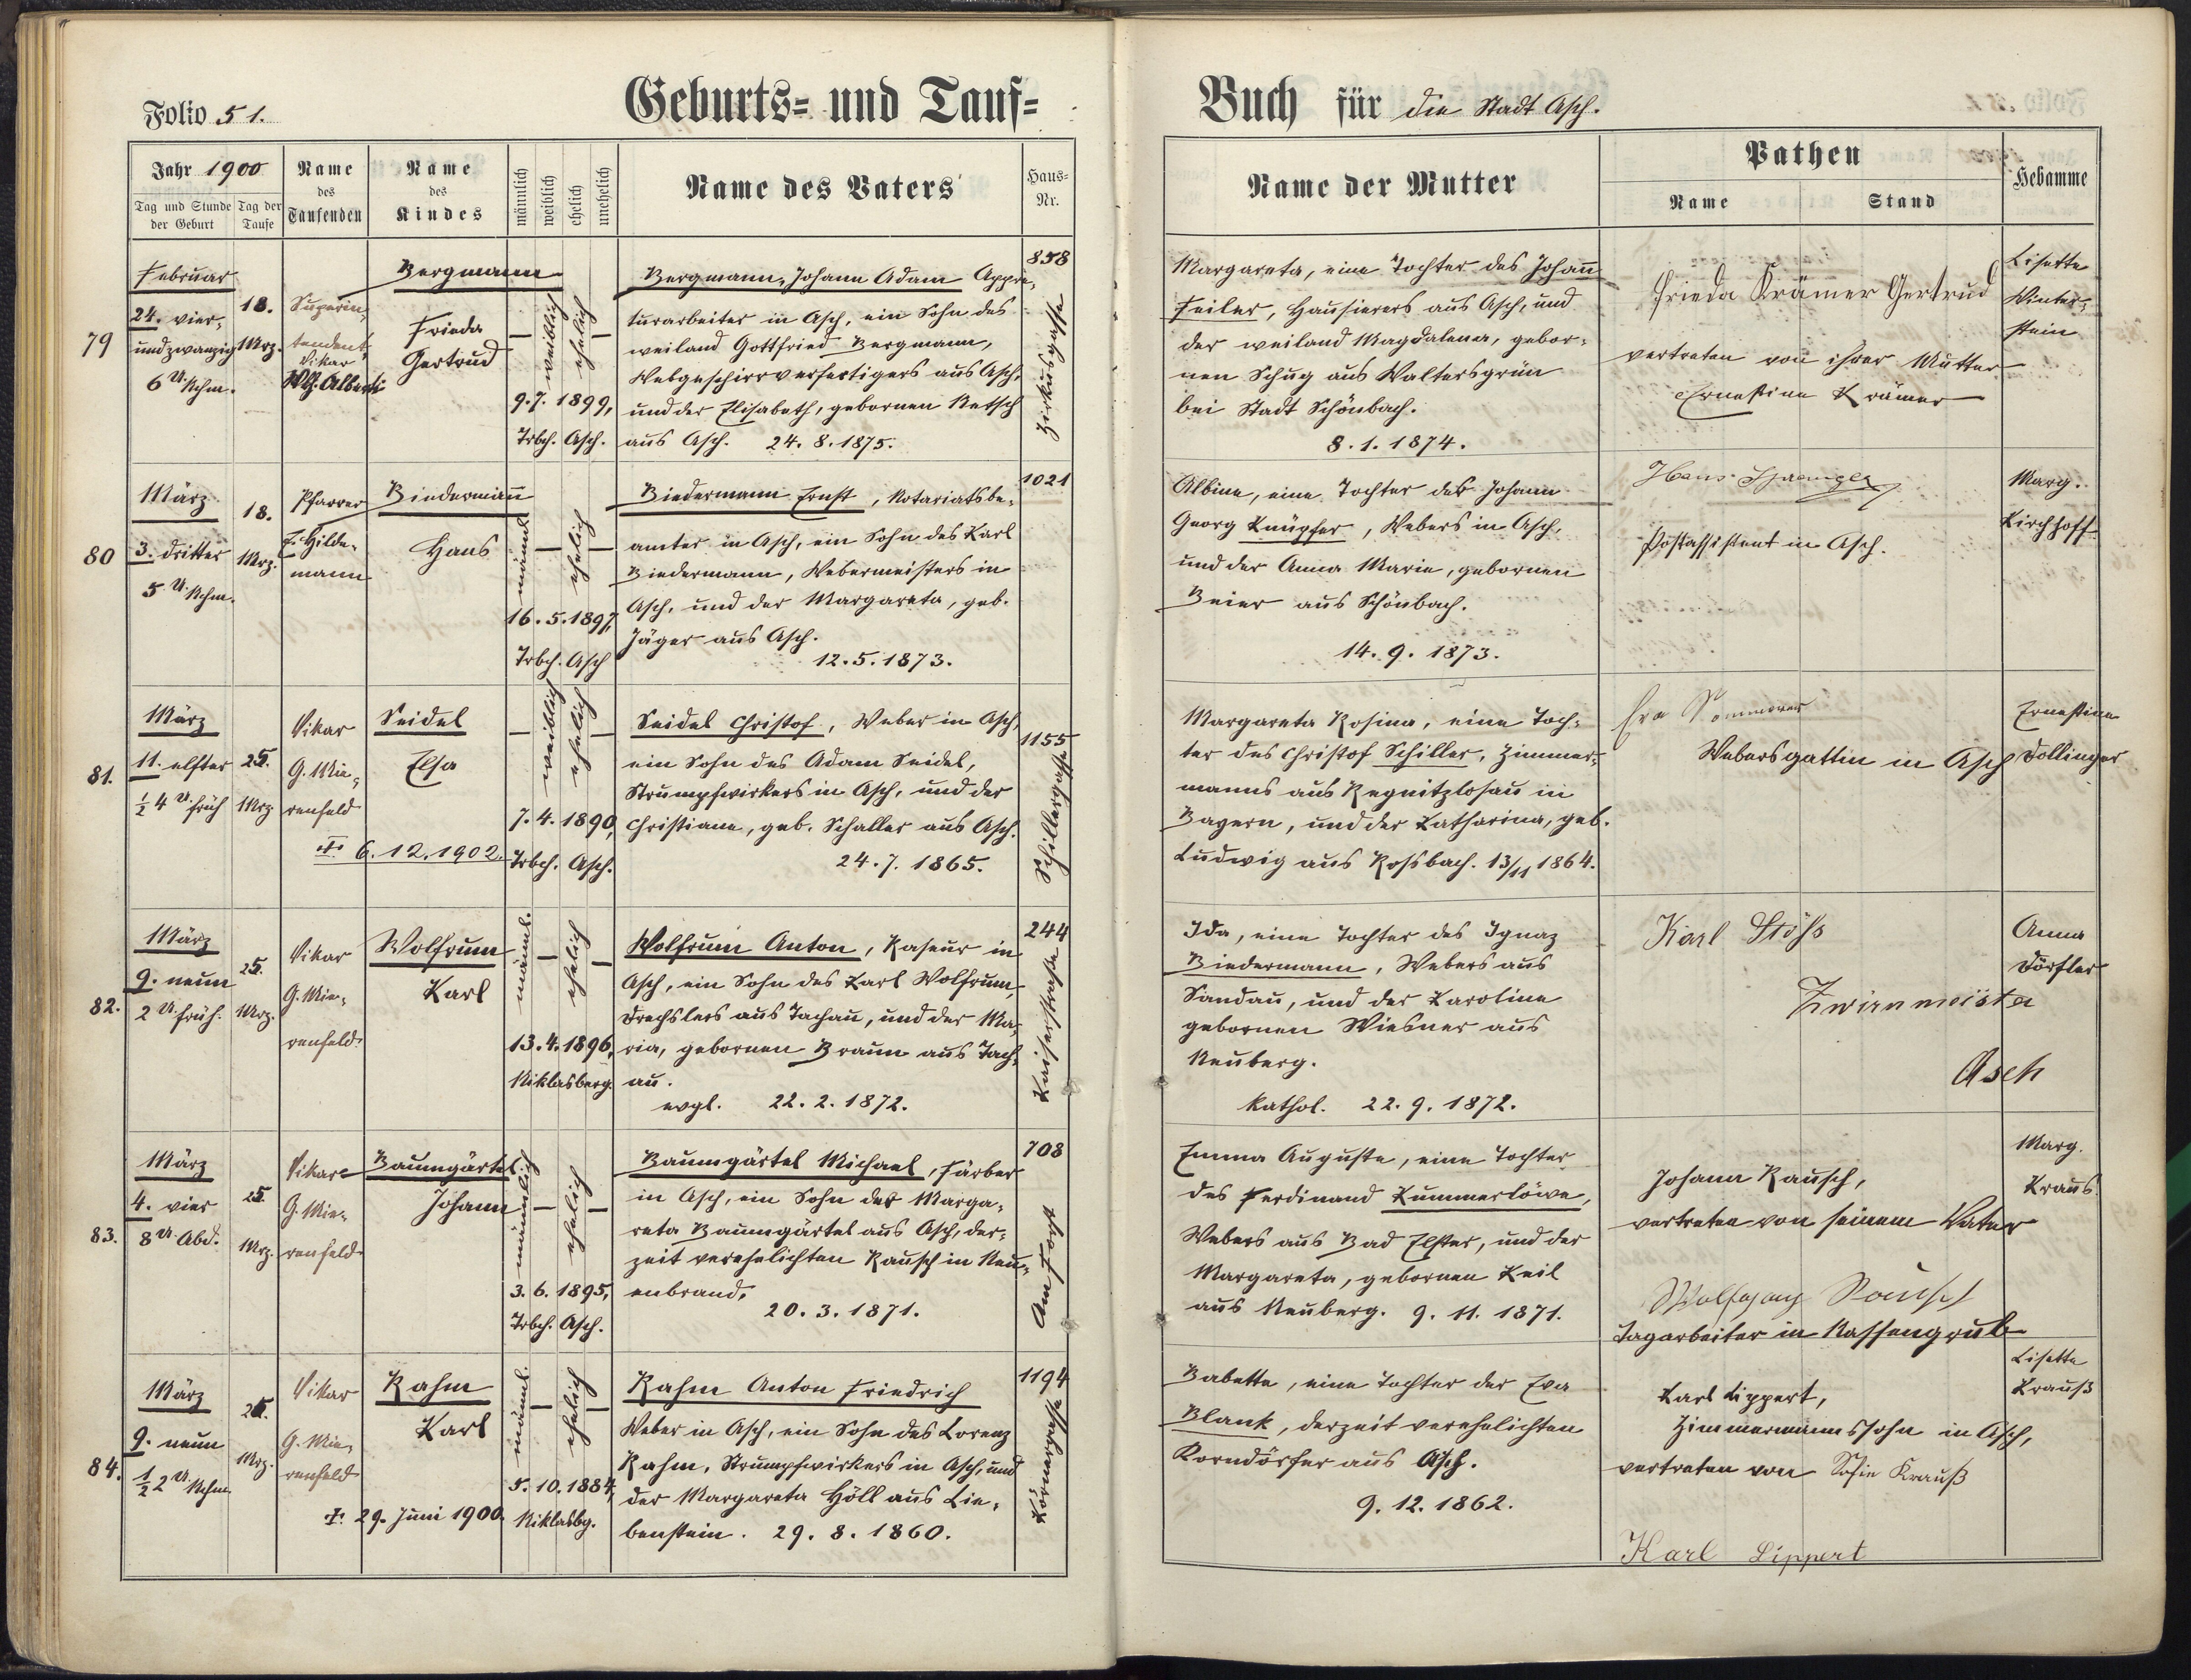 Folio 51.
Geburts- und Tauf-
Buch für die Stadt Asch.
Jahr 1900
Tag und Stunde der Geburt
Tag der Taufe
Name des Taufenden
Name des Kindes
männlich
weiblich
ehelich
unehelich
Name des Vaters
Haus-Nr.
Name der Mutter
Pathen
Name
Stand
Hebamme
79
Februar
24. vier-
undzwanzig
6 U Nchm.
18.
Mrz.
Superin-
tendent
Vikar
Alberti
Bergmann
Frieda
Gertrud
weiblich
ehelich
9.7. 1899,
Trbch. Asch.
Bergmann, Johann Adam Appre-
turarbeiter in Asch, ein Sohn des
weiland Gottfried Bergmann,
Webgeschirrverfertigers aus Asch,
und der Elisabeth, gebornen Netsch
aus Asch. 24. 8. 1875.
858
Zirkusgasse
Margareta, eine Tochter des Johann
Feiler, Hausierers aus Asch, und
der weiland Magdalena, gebor-
nen Schug aus Waltersgrün
bei Stadt Schönbach.
8. 1. 1874.
Frieda Krämer Gertrud
vertreten von ihrer Mutter
Ernestine Krämer
Lisette
Winter-
stein
80
März
3. dritter
5 U Nchm.
18.
Mrz.
Pfarrer
Hilde-
mann
Biedermann
Hans
männl.
ehelich
16. 5. 1897,
Trbch. Asch
Biedermann Ernst, Notariatsbe-
amter in Asch, ein Sohn des Karl
Biedermann, Webermeisters in
Asch, und der Margareta, geb.
Jäger aus Asch.
12. 5. 1873.
1021
Albine, eine Tochter des Johann
Georg Knüpfer, Webers in Asch,
und der Anna Marie, gebornen
Beier aus Schönbach.
14. 9. 1873.
Hans
Postassistent in Asch.
Marg.
Kirchhoff
81.
März
11. elfter
½ 4 U. früh
25.
Mrz
Vikar
G. Mie-
renfeld
Seidel
Elsa
† 6. 12. 1902.
weiblich
ehelich
7. 4. 1890,
Trbch. Asch.
Seidel Christof, Weber in Asch,
ein Sohn des Adam Seidel,
Strumpfwirkers in Asch, und der
Christiane, geb. Schaller aus Asch.
24. 7. 1865.
1155
Schillergasse
Margareta Rosina, eine Toch-
ter des Christof Schiller, Zimmer-
manns aus Regnitzlosau in
Bayern, und der Katharina, geb.
Ludwig aus Rossbach. 13/11 1864.
Eva Sommerer
Webersgattin in Asch
Ernestine
Dollinger
82.
März
9. neun
2 U. früh.
25.
Mrz.
Vikar
G. Mie-
renfeld
Wolfrum
Karl
männl.
ehelich
13. 4. 1896,
Niklasberg.
Wolfrum Anton, Raseur in
Asch, ein Sohn des Karl Wolfrum,
Drechslers aus Tachau, und der Ma-
ria, gebornen Braun aus Tach-
au.
evgl. 22. 2. 1872.
244
Kaiserstraße
Ida, eine Tochter des Ignaz
Biedermann, Webers aus
Sandau, und der Karoline
gebornen Wiesner aus
Neuberg.
kathol. 22. 9. 1872.
Karl Stöß
Zwirnmeister
Asch
Anna
Dörfler
83.
März
4. vier
8 U. Abd.
25.
Mrz.
Vikar
G. Mie-
renfeld
Baumgärtel
Johann
männlich
ehelich
3. 6. 1895,
Trbch. Asch.
Baumgärtel Michael, Färber
in Asch, ein Sohn der Marga-
reta Baumgärtel aus Asch, der-
zeit verehelichten Rausch in Neu-
enbrand.
20. 3. 1871.
708
Am Forst
Emma Auguste, eine Tochter
des Ferdinand Kummerlöwe,
Webers aus Bad Elster, und der
Margareta, gebornen Keil
aus Neuberg. 9. 11. 1871.
Johann Rausch,
vertreten von seinem Vater
Wolfgang Rausch
Tagarbeiter in Nassengrub
Marg.
Kraus
84.
März
9. neun
½ 2 U. Nchm
25.
Mrz.
Vikar
G. Mie-
renfeld
Rahm
Karl
† 29. Juni 1900.
männl.
ehelich
5. 10. 1884,
Niklasbg.
Rahm Anton Friedrich
Weber in Asch, ein Sohn des Lorenz
Rahm, Strumpfwirkers in Asch, und
der Margareta Höll aus Lie-
benstein. 29. 8. 1860.
1194
Körnergasse
Babette, eine Tochter der Eva
Blank, derzeit verehelichten
Korndörfer aus Asch.
9. 12. 1862.
Karl Lippert,
Zimmermannssohn in Asch,
vertreten von Sofie Krauß
Karl Lippert
Lisette
Krauß